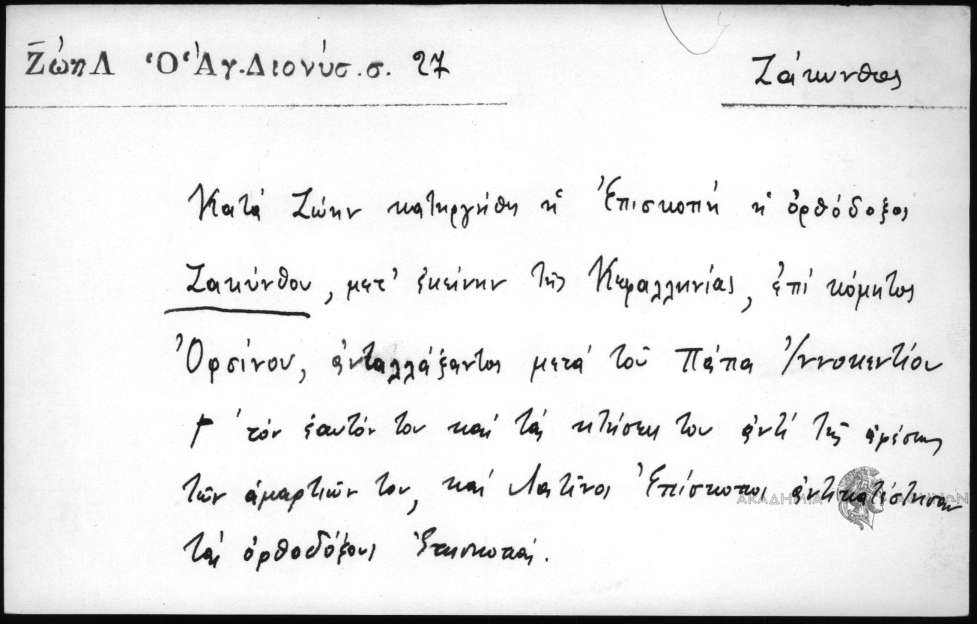 Ζώη Λ Ὁ Ἁγ. Διονύσ. σ. 27
Ζάκυνθος
Κατά Ζώην κατηργήθη ἡ Ἐπισκοπή ἡ ὀρθόδοξος
Ζακύνθου, μετ' ἐκείνην τῆς Κεφαλληνίας, ἐπί κόμητος
Ὀρσίνου, ἀνταλλάξαντος μετά τοῦ Πάπα Ἰννοκεντίου
τόν ἑαυτόν του καί τάς κτήσεις του ἀντί τῆς ἀφέσεως
τῶν ἁμαρτιῶν του, καί Λατῖνοι Ἐπίσκοποι ἀντικατέστησαν
τάς ὀρθοδόξους Ἐπισκοπάς.
ΑΚΑΔΗΜΙΑ ΑΘΗΝΩΝ